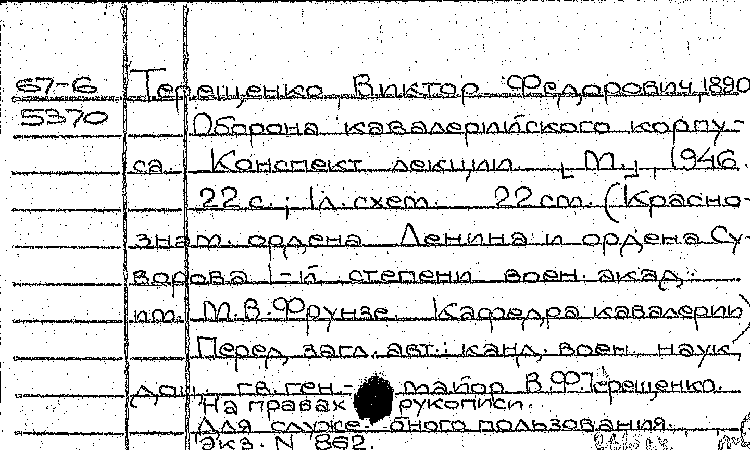 67-6
5370
Терещенко, Виктор Федорович, 1890
Оборона кавалерийского корпу-
са. Конспект лекции. [М.], 1946.
22 с.; 1 л. схем. 22 cm. (Красно-
знам. ордена Ленина и ордена Су-
ворова 1-й степени воен. акад.
им. М.В. Фрунзе. Кафедра кавалерии)
Перед загл. авт.: канд. воен. наук,
доц. гв. ген.-майор В.Ф. Терещенко.
На правах рукописи.
Для служебного пользования.
Экз. N 862.